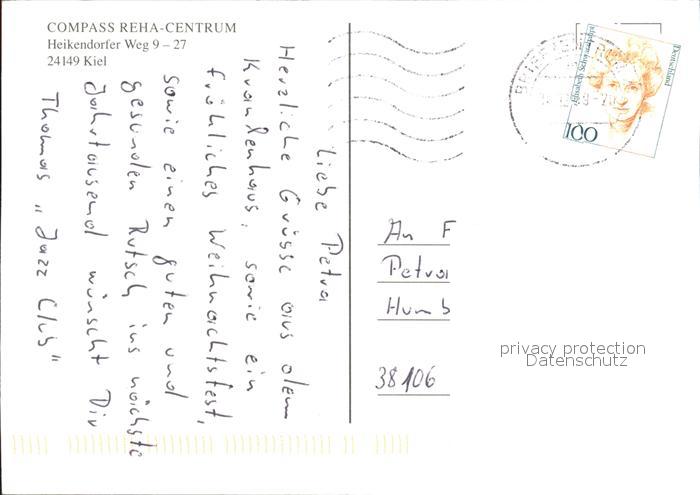 COMPASS REHA-CENTRUM
Heikendorfer Weg 9 – 27
24149 Kiel
Liebe Petra
Herzliche Grüsse aus dem
Krankenhaus, sowie ein
fröhliches Weihnachtsfest,
sowie einen guten und
gesunden Rutsch ins nächste
Jahrtausend wünscht Dir
Thomas „Jazz Club"
Deutschland
Elisabeth Schwarzhaupt
100
An F
Petra
Humb
38106
privacy protection
Datenschutz